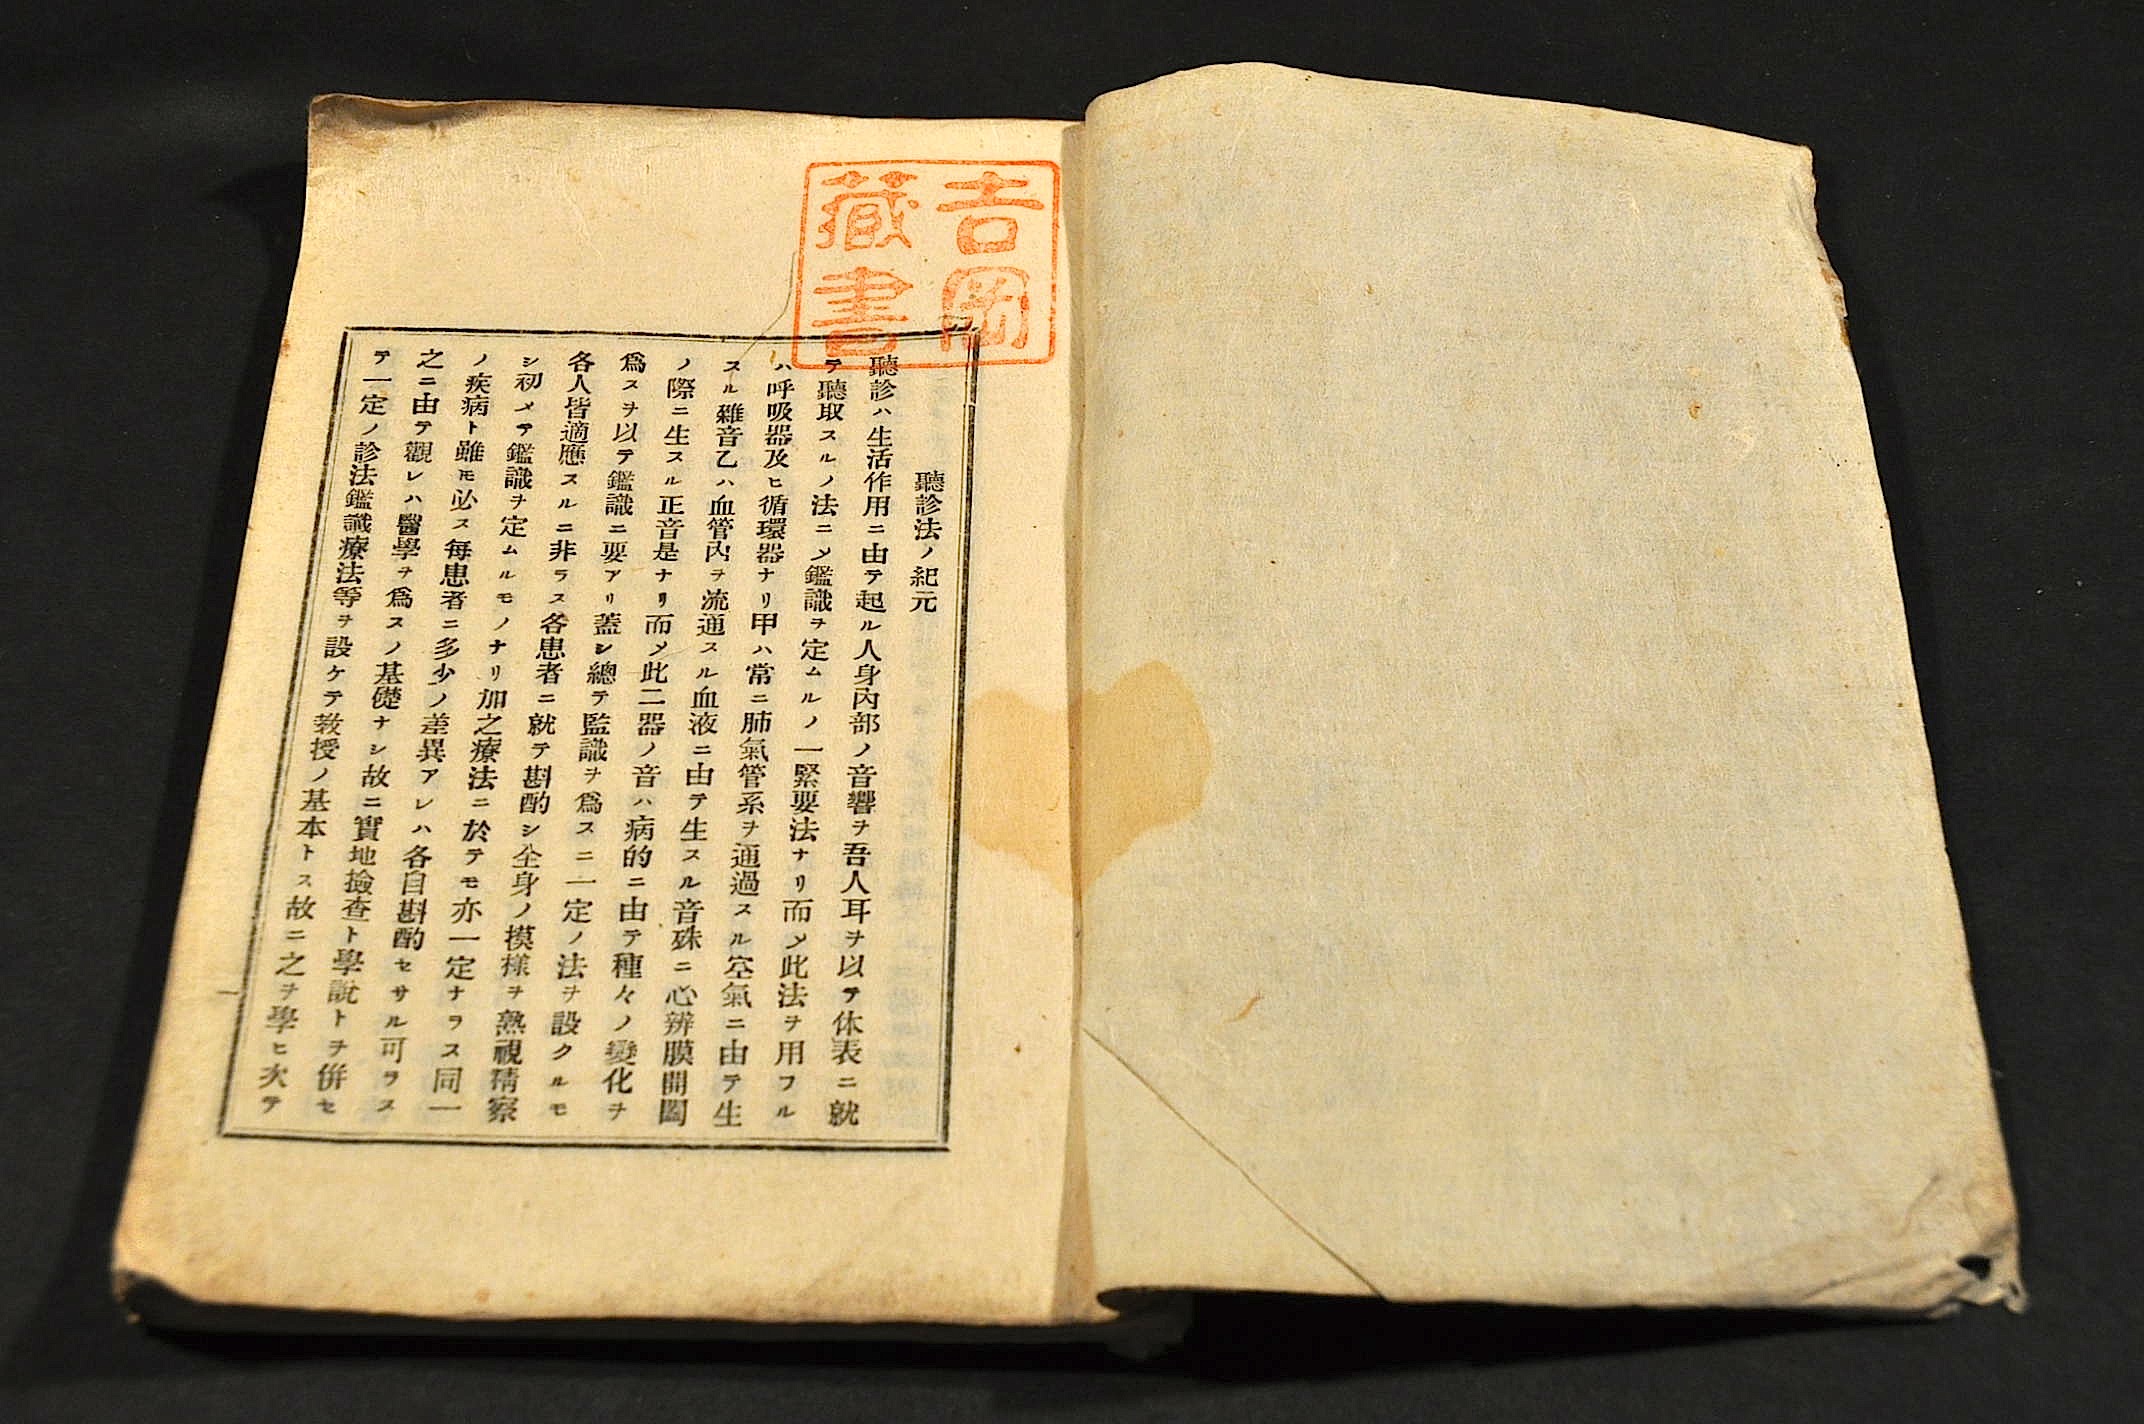 吉岡
藏書
聽診法ノ紀元
聽診ハ生活作用ニ由テ起ル人身内部ノ音響ヲ吾人耳ヲ以テ体表ニ就
テ聽取スルノ法ニ〆鑑識ヲ定ムルノ一緊要法ナリ而〆此法ヲ用フル
ハ呼吸器及ヒ循環器ナリ甲ハ常ニ肺氣管系ヲ通過スル空氣ニ由テ生
スル雜音乙ハ血管内ヲ流通スル血液ニ由テ生スル音殊ニ心辨膜開闔
ノ際ニ生スル正音是ナリ而〆此二器ノ音ハ病的ニ由テ種々ノ變化ヲ
爲スヲ以テ鑑識ニ要アリ蓋シ總テ監識ヲ爲スニ一定ノ法ヲ設クルモ
各人皆適應スルニ非ラス各患者ニ就テ斟酌シ全身ノ摸樣ヲ熟視精察
シ初メテ鑑識ヲ定ムルモノナリ加之療法ニ於テモ亦一定ナラス同一
ノ疾病ト雖モ必ス毎患者ニ多少ノ差異アレハ各自斟酌セサル可ラス
之ニ由テ觀レハ醫學ヲ爲スノ基礎ナシ故ニ實地撿查ト學說トヲ併セ
テ一定ノ診法鑑識療法等ヲ設ケテ教授ノ基本トス故ニ之ヲ學ヒ次テ
一